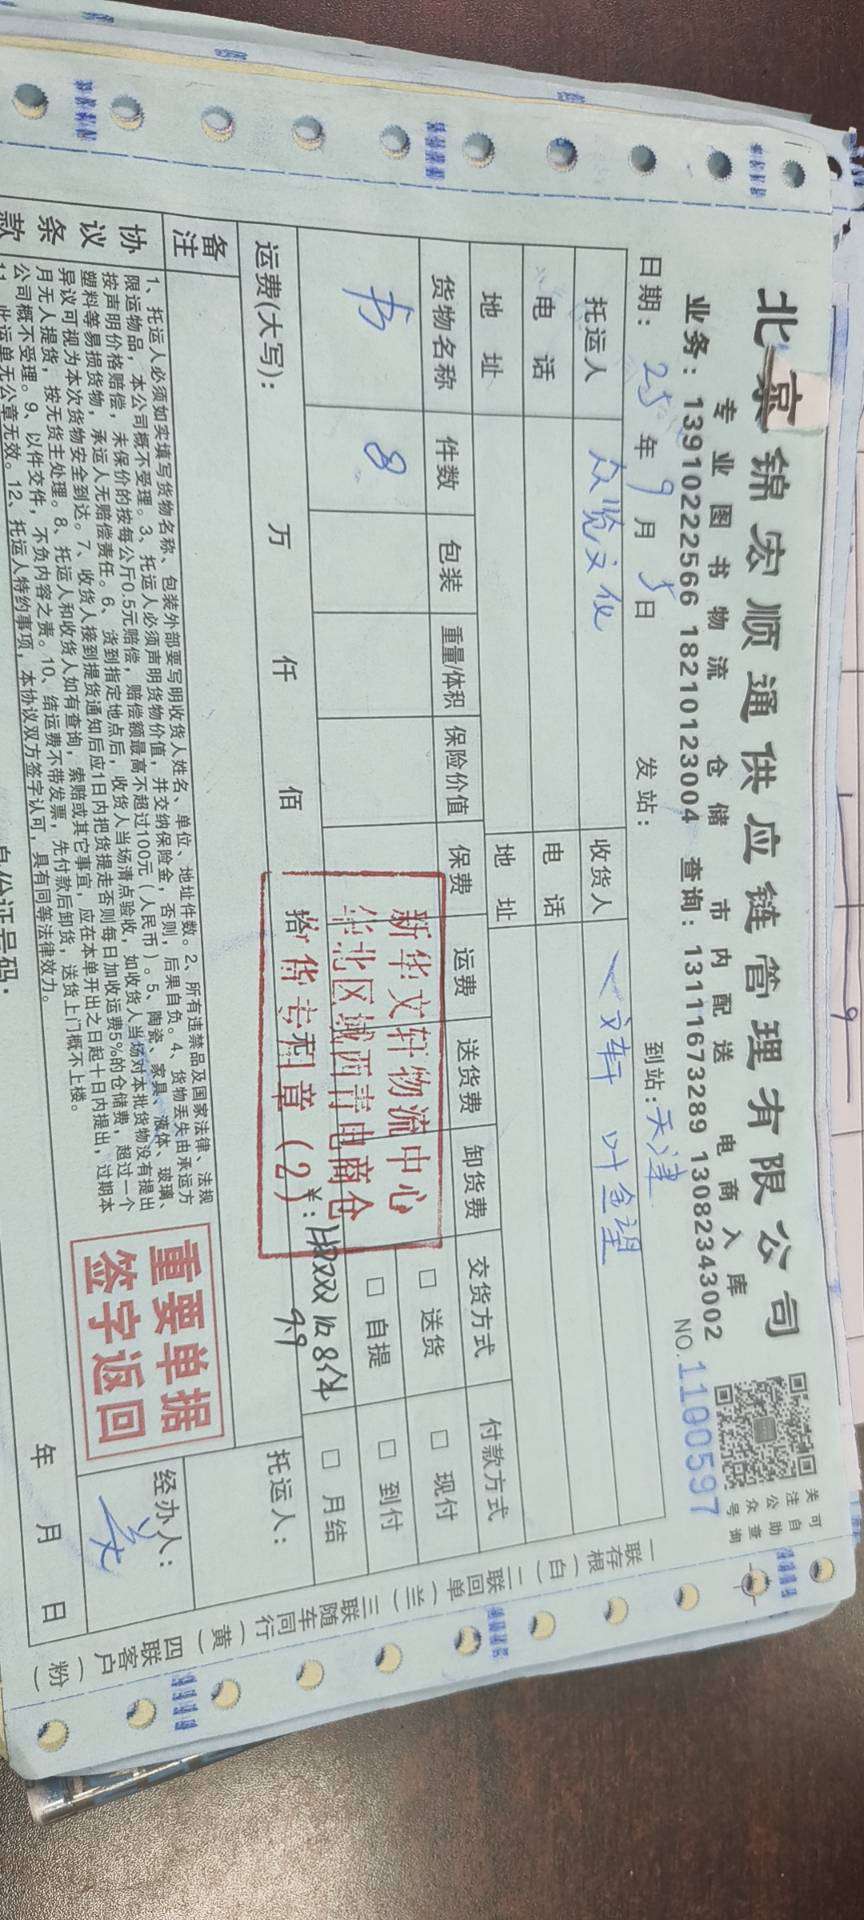 北京锦宏顺通供应链管理有限公司
专业图书物流 仓储 市内配送 电商入库
业务：13910222566 18210123004 查询：13111673289 13082343002
关注公众号
可自助查询
NO.1100597
日期：25年9月5日 发站： 到站：天津
托运人 众览文化 收货人 文轩 叶金望
电话 电话
地址 地址
货物名称 件数 包装 重量/体积 保险价值 保费 运费 送货费 卸货费 交货方式 付款方式
书 8 □送货 □现付
□自提 □到付
□月结
新华文轩物流中心
华北区域西青电商仓
拾货专用章（2）
运费(大写)： 万 仟 佰 拾 元 ￥：
8件
9.9
托运人：
备注
重要单据
签字返回
协议条款
1、托运人必须如实填写货物名称、包装外部要写明收货人姓名、单位、地址件数。2、所有违禁品及国家法律、法规
限运物品，本公司概不受理。3、托运人必须声明货物价值，并交纳保险金，否则，后果自负。4、货物丢失由承运方
按声明价格赔偿，未保价的按每公斤0.5元赔偿，赔偿额最高不超过100元（人民币）。5、陶瓷、家具、液体、玻璃、
塑料等易损货物，承运人无赔偿责任。6、货到指定地点后，收货人当场清点验收，如收货人当场对本批货物没有提出
异议可视为本次货物安全到达。7、收货人接到提货通知后应1日内把货提走否则每日加收运费5%的仓储费，超过一个
月无人提货，按无货主处理。8、托运人和收货人如有查询，索赔或其它事宜，应在本单开出之日起十日内提出，过期本
公司概不受理。9、以件交件，不负内容之责。10、结运费不带发票，先付款后卸货，送货上门概不上楼。
11、此运单无公章无效。12、托运人特约事项，本协议双方签字认可，具有同等法律效力。
经办人：
身份证号码： 年 月 日
一联存根（白）二联回单（兰）三联随车同行（黄）四联客户（粉）